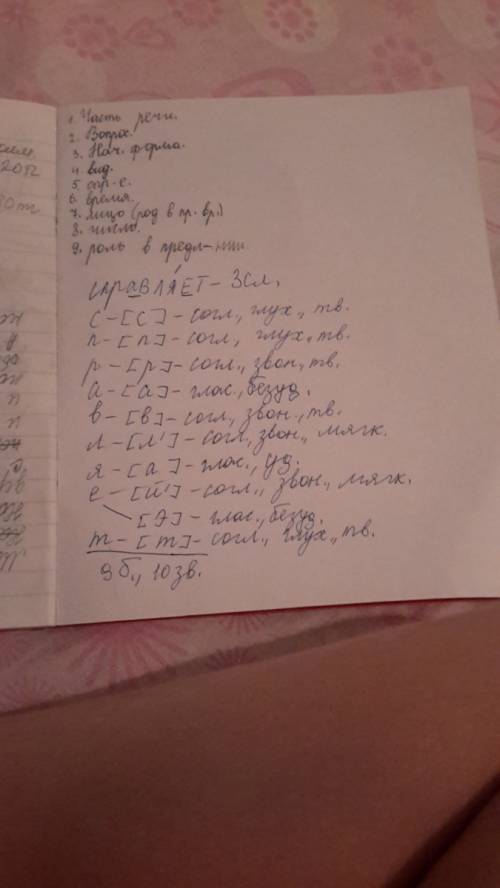 1. Часть речи.
2. Вопрос.
3. Нач. форма.
4. вид.
5. спр-е.
6. время.
7. лицо (род в пр. вр.)
8. число.
9. роль в предл-нии.
справляет - 3сл.
с - [с] - согл., глух., тв.
п - [п] - согл., глух., тв.
р - [р] - согл., звон., тв.
а - [а] - глас., безуд.
в - [в] - согл., звон., тв.
л - [л'] - согл., звон., мягк.
я - [а] - глас., уд.
е - [й'] - согл., звон., мягк.
[э] - глас., безуд.
т - [т] - согл., глух., тв.
9 б., 10 зв.